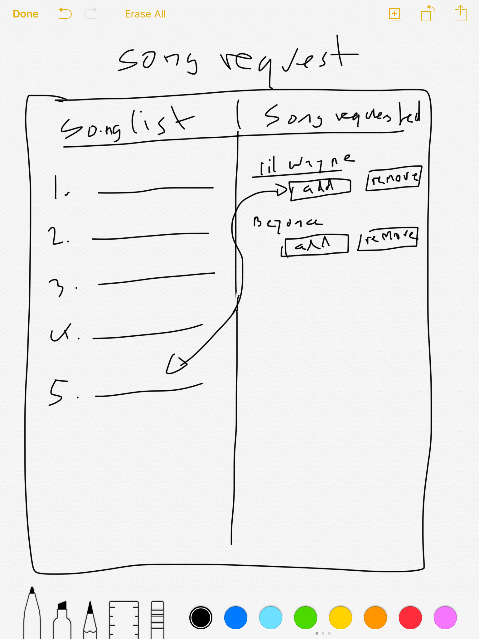 Done Erase All
song request
Song list Song requested
lil wayne
add remove
Beyonce
add remove
1.
2.
3.
4.
5.